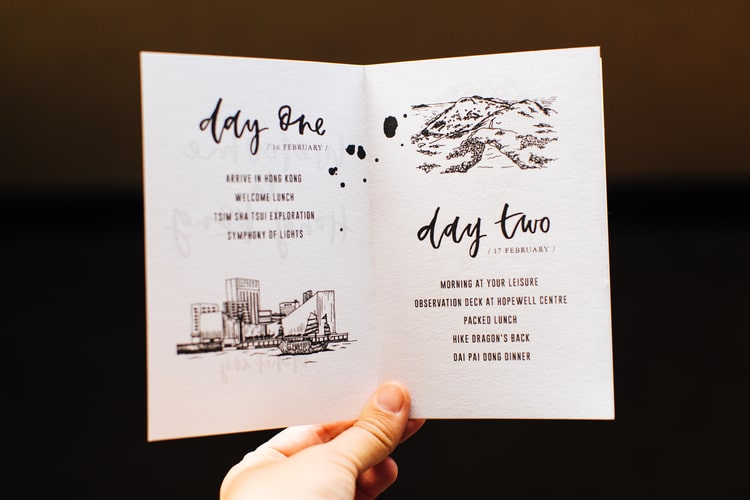 day one
/ 16 FEBRUARY /
ARRIVE IN HONG KONG
WELCOME LUNCH
TSIM SHA TSUI EXPLORATION
SYMPHONY OF LIGHTS
day two
/ 17 FEBRUARY /
MORNING AT YOUR LEISURE
OBSERVATION DECK AT HOPEWELL CENTRE
PACKED LUNCH
HIKE DRAGON'S BACK
DAI PAI DONG DINNER